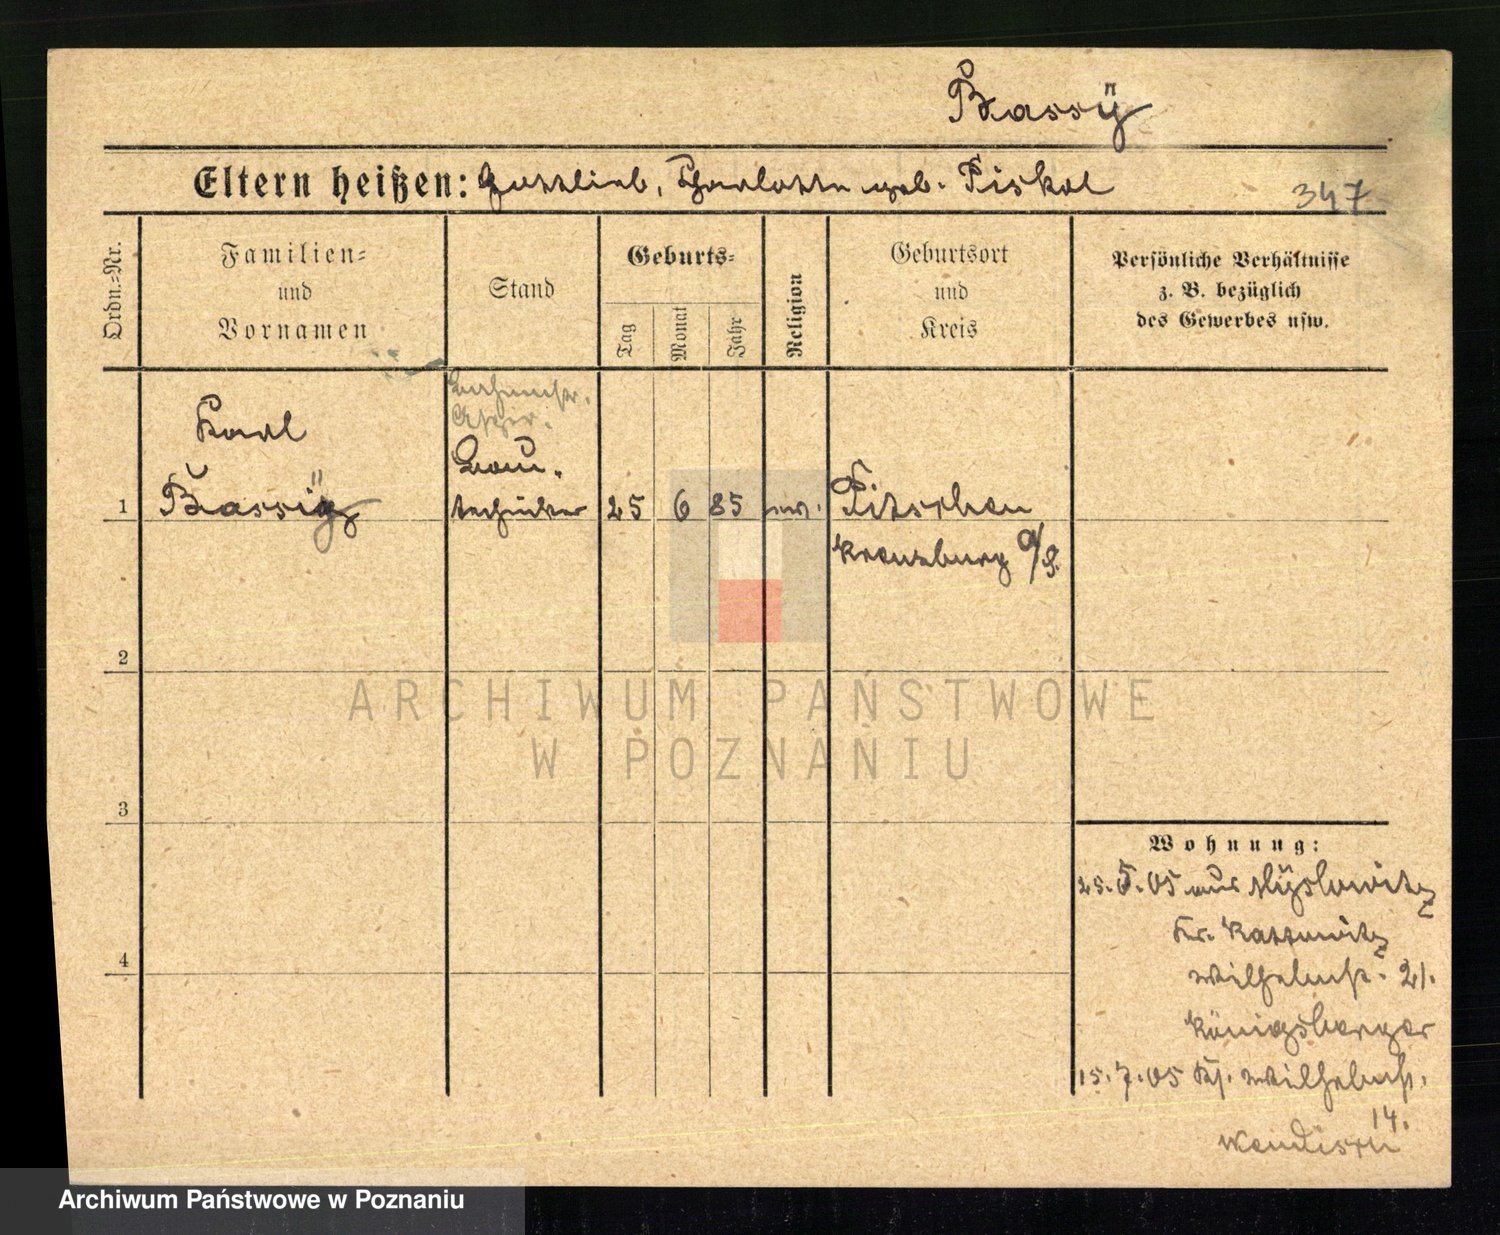 Bassÿ
Eltern heißen: Gottlieb, Charlotte geb. Piskol
347
Ordn.-Nr.
Familien-
und
Vornamen
Stand
Geburts-
Tag
Monat
Jahr
Religion
Geburtsort
und
Kreis
Persönliche Verhältnisse
z. B. bezüglich
des Gewerbes usw.
Karl
Bau-
1
techniker 25 6 85 ev. Pitschen
Kreuzburg O/S.
2
ARCHIWUM PAŃSTWOWE
W POZNANIU
3
Wohnung:
25.5.05 aus Myslowitz
Kr. Kattowitz
4
Wilhelmstr. 21.
Königsberger
15.7.05 Wilhelmstr.
14.
Archiwum Państwowe w Poznaniu